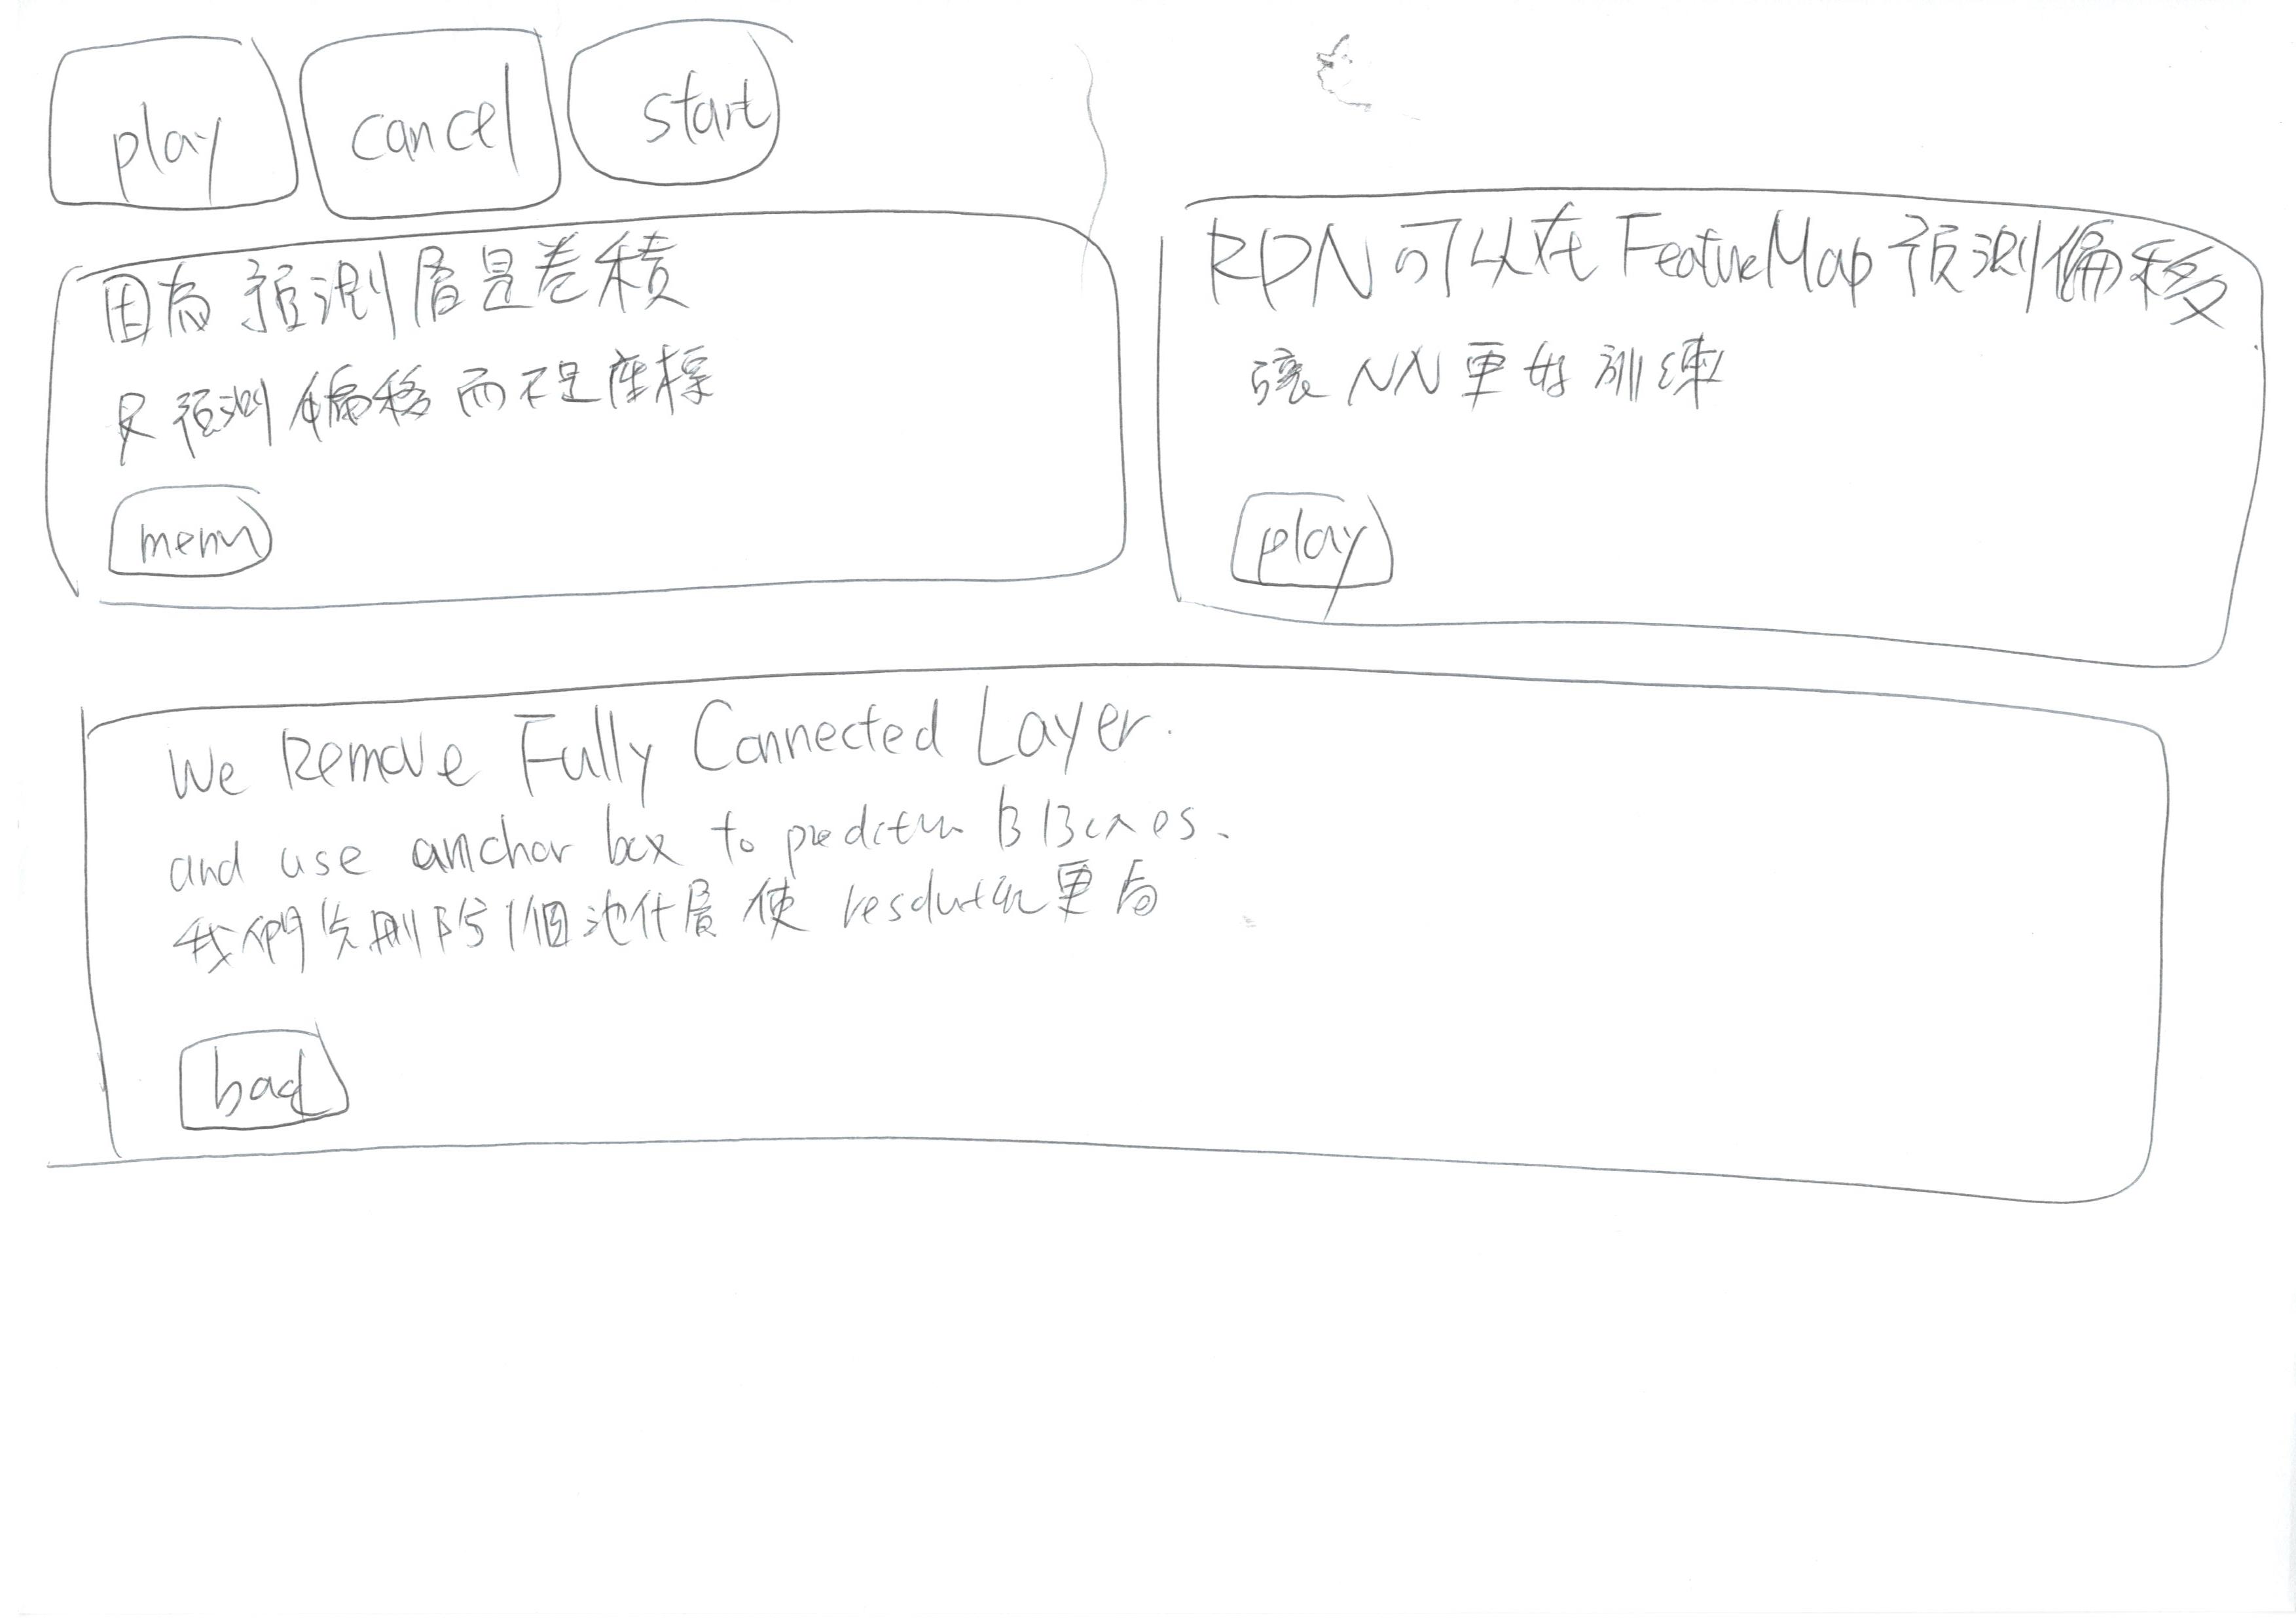 play
cancel
start
因為預測層是卷積
只預測偏移而不是座標
menu
RPN可以在 FeatureMap 預測偏移
讓NN更好訓練
play
We Remove Fully Connected Layer.
and use anchor box to BBoxes.
我們先刪除1個池化層使 resolution更高